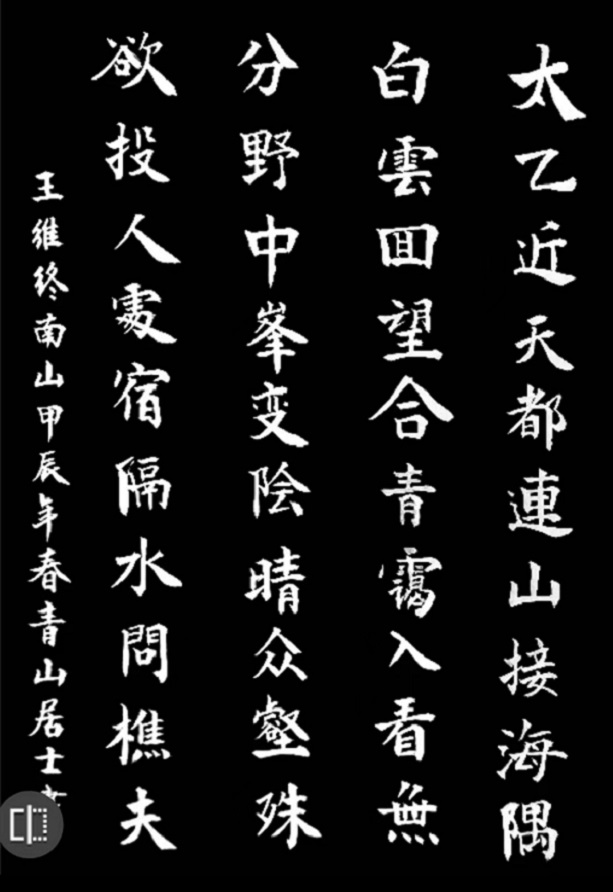 太乙近天都連山接海隅
白雲囬望合青靄入看無
分野中峯变陰晴众壑殊
欲投人處宿隔水問樵夫
王維終南山甲辰年春青山居士